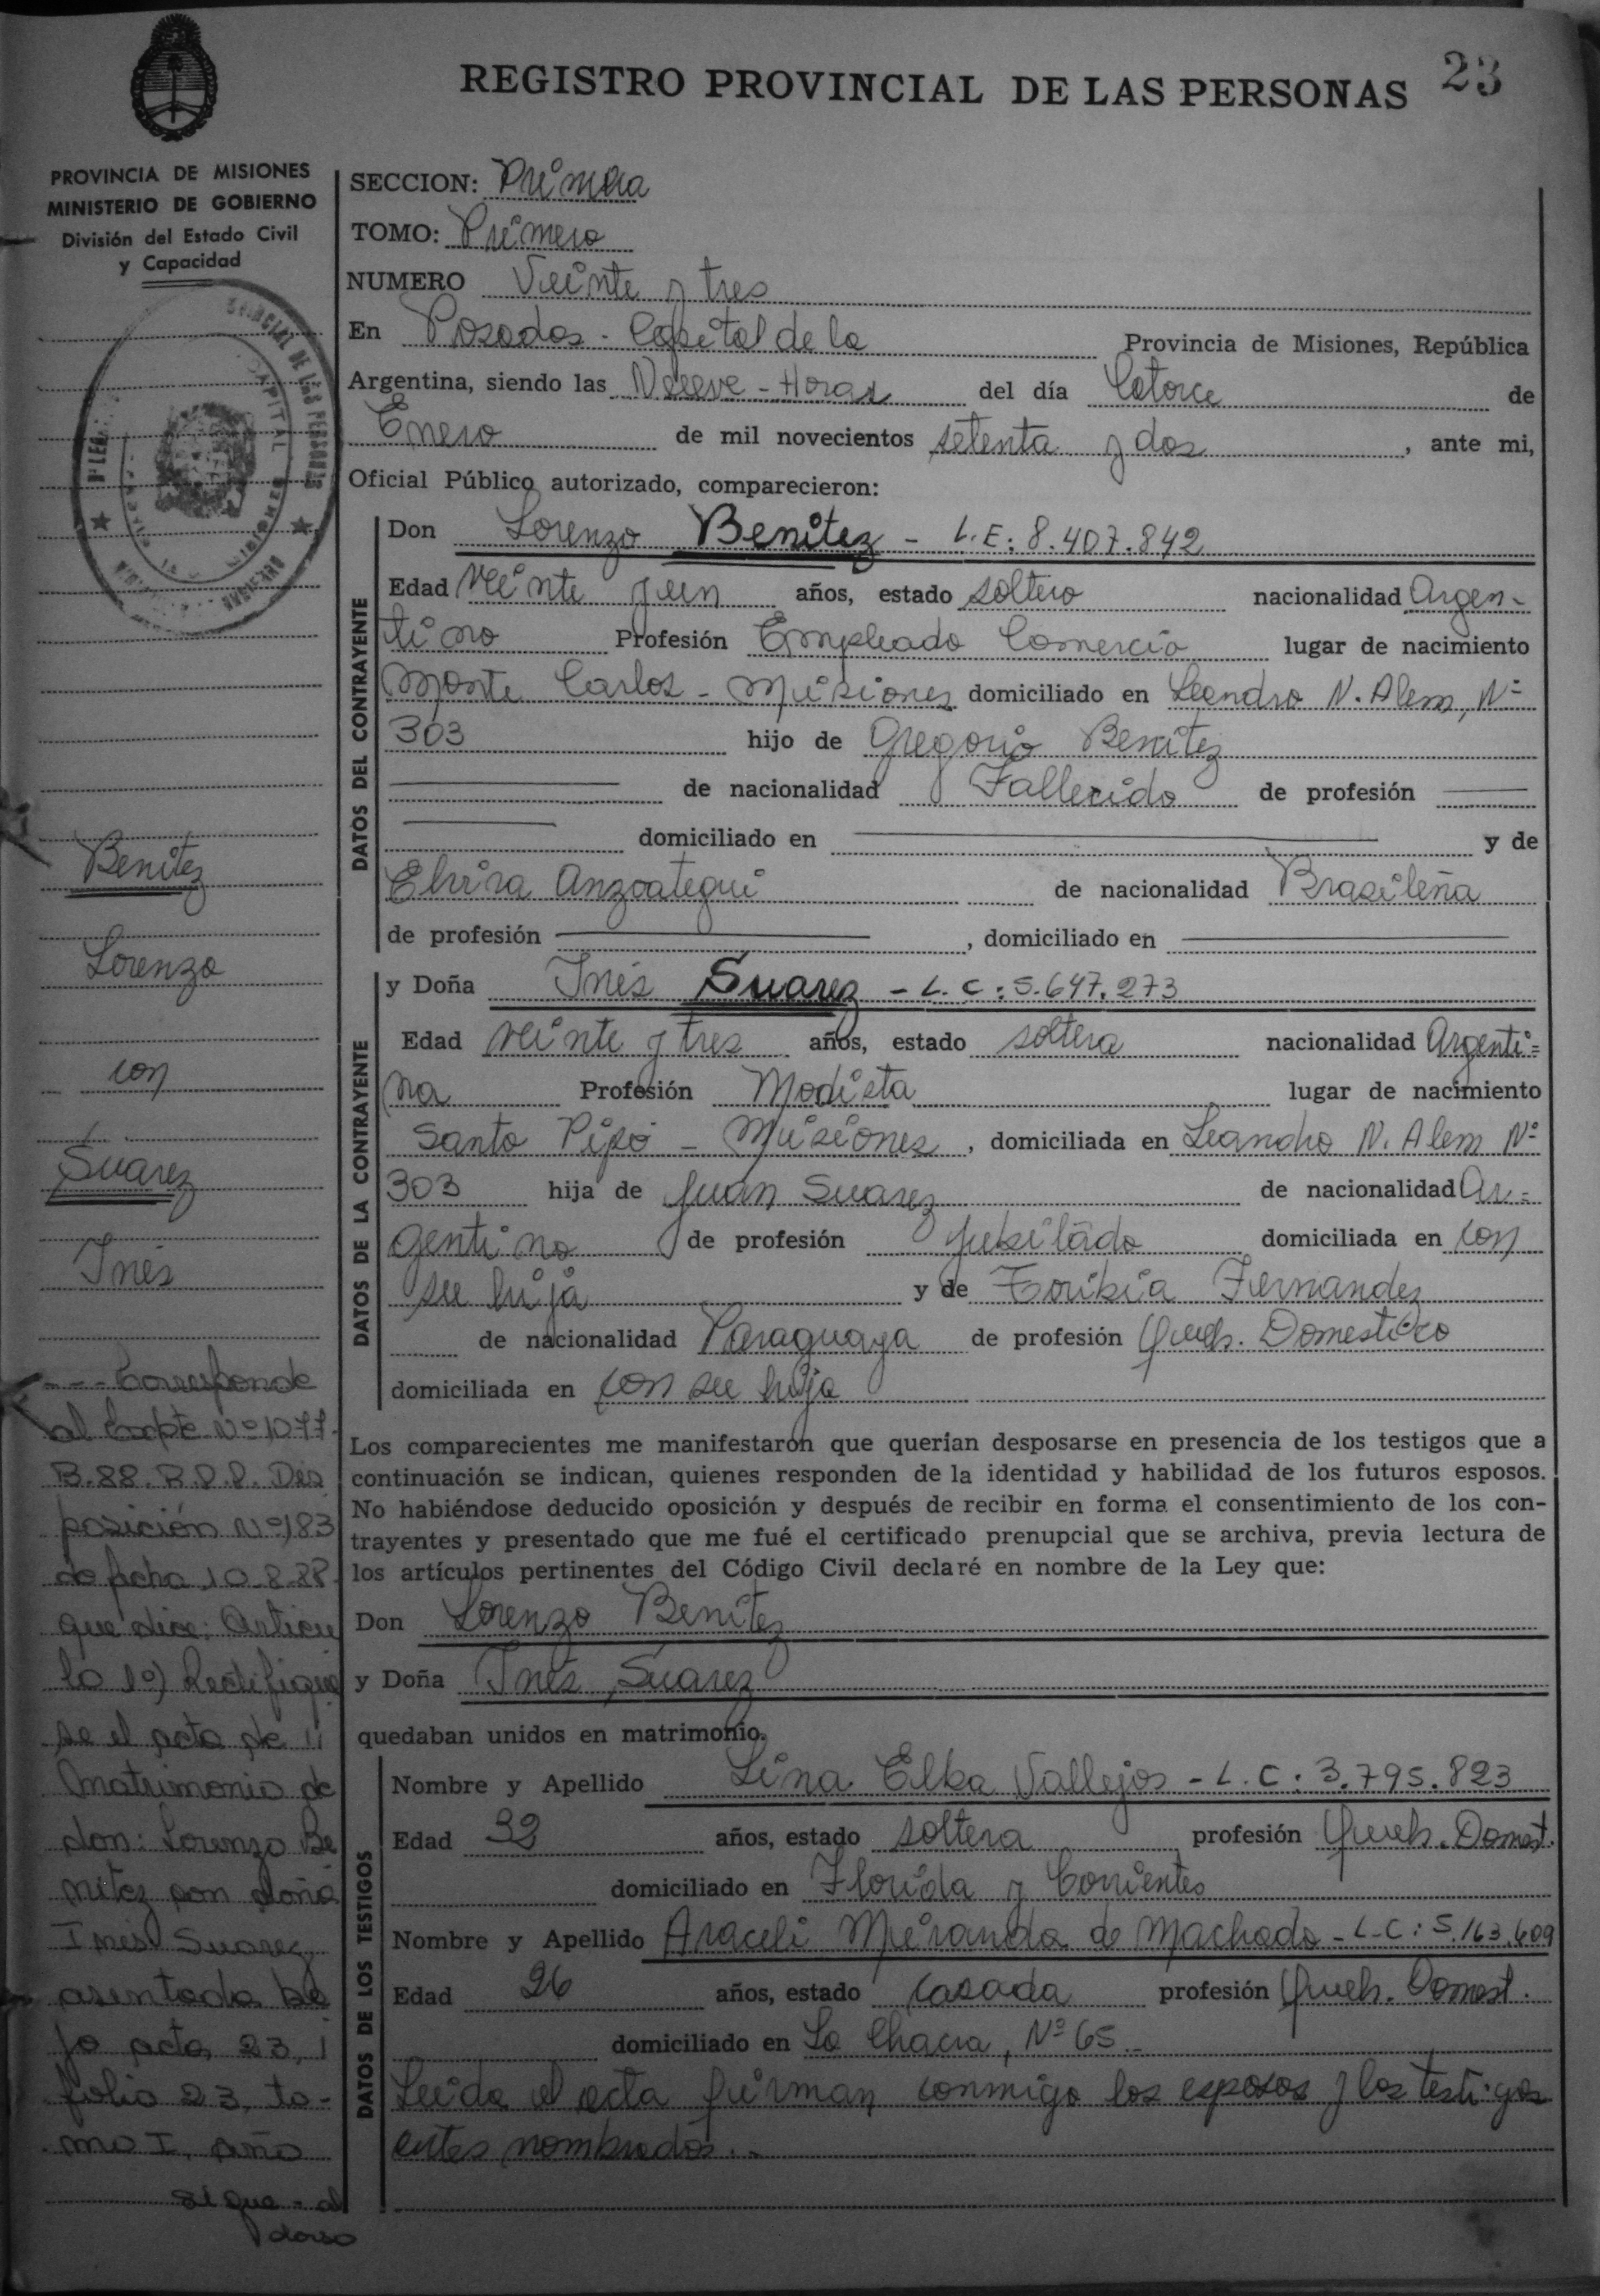 REGISTRO PROVINCIAL DE LAS PERSONAS 23
PROVINCIA DE MISIONES
MINISTERIO DE GOBIERNO
División del Estado Civil
y Capacidad
SECCION: Primera
TOMO: Primero
NUMERO Veinte y tres
En Posadas - Capital de la Provincia de Misiones, República
Argentina, siendo las Nueve - Horas del día Catorce de
Enero de mil novecientos setenta y dos, ante mi,
Oficial Público autorizado, comparecieron:
DATOS DEL CONTRAYENTE
Don Lorenzo Benitez - L.E: 8.407.842
Edad veinte y un años, estado soltero nacionalidad Argen-
tino Profesión Empleado Comercio lugar de nacimiento
Monte Carlos - Misiones domiciliado en Leandro N. Alem, Nº
303 hijo de Gregorio Benitez
de nacionalidad Fallecido de profesión
domiciliado en y de
Elvira Anzoategui de nacionalidad Brasileña
de profesión , domiciliado en
DATOS DE LA CONTRAYENTE
y Doña Inés Suarez - L.C: 5.647.273
Edad veinte y tres años, estado soltera nacionalidad Argenti=
na Profesión Modista lugar de nacimiento
Santo Pipó - Misiones, domiciliada en Leandro N. Alem Nº
303 hija de Juan Suarez de nacionalidad Ar=
gentino de profesión Jubilado domiciliada en con
su hija y de Toribia Fernandez
de nacionalidad Paraguaya de profesión Queh. Domestico
domiciliada en con su hija
Los comparecientes me manifestaron que querían desposarse en presencia de los testigos que a
continuación se indican, quienes responden de la identidad y habilidad de los futuros esposos.
No habiéndose deducido oposición y después de recibir en forma el consentimiento de los con-
trayentes y presentado que me fué el certificado prenupcial que se archiva, previa lectura de
los artículos pertinentes del Código Civil declaré en nombre de la Ley que:
Don Lorenzo Benitez
y Doña Inés Suarez
quedaban unidos en matrimonio.
DATOS DE LOS TESTIGOS
Nombre y Apellido Lina Elba Vallejos - L.C: 3.795.823
Edad 32 años, estado soltera profesión Queh. Domest.
domiciliado en Florida y Corrientes
Nombre y Apellido Araceli Miranda de Machado - L-C: 5.163.609
Edad 26 años, estado casada profesión Queh. Domest.
domiciliado en La Chacra, Nº 65.-
Leida el acta firman conmigo los esposos y los testigos
antes nombrados.-
Benitez
Lorenzo
con
Suarez
Inés
--- Corresponde
al Expte Nº 1077-
B.88. R.P.P. Dis
posición Nº 183
de fecha 10-8-88-
que dice: Articu
lo 1º) Rectifique
se el acta de
matrimonio de
don: Lorenzo Be
nitez con doña
Inés Suarez,
asentada ba
jo acta 23,
folio 23, to-
mo I, año
sigue - al
dorso